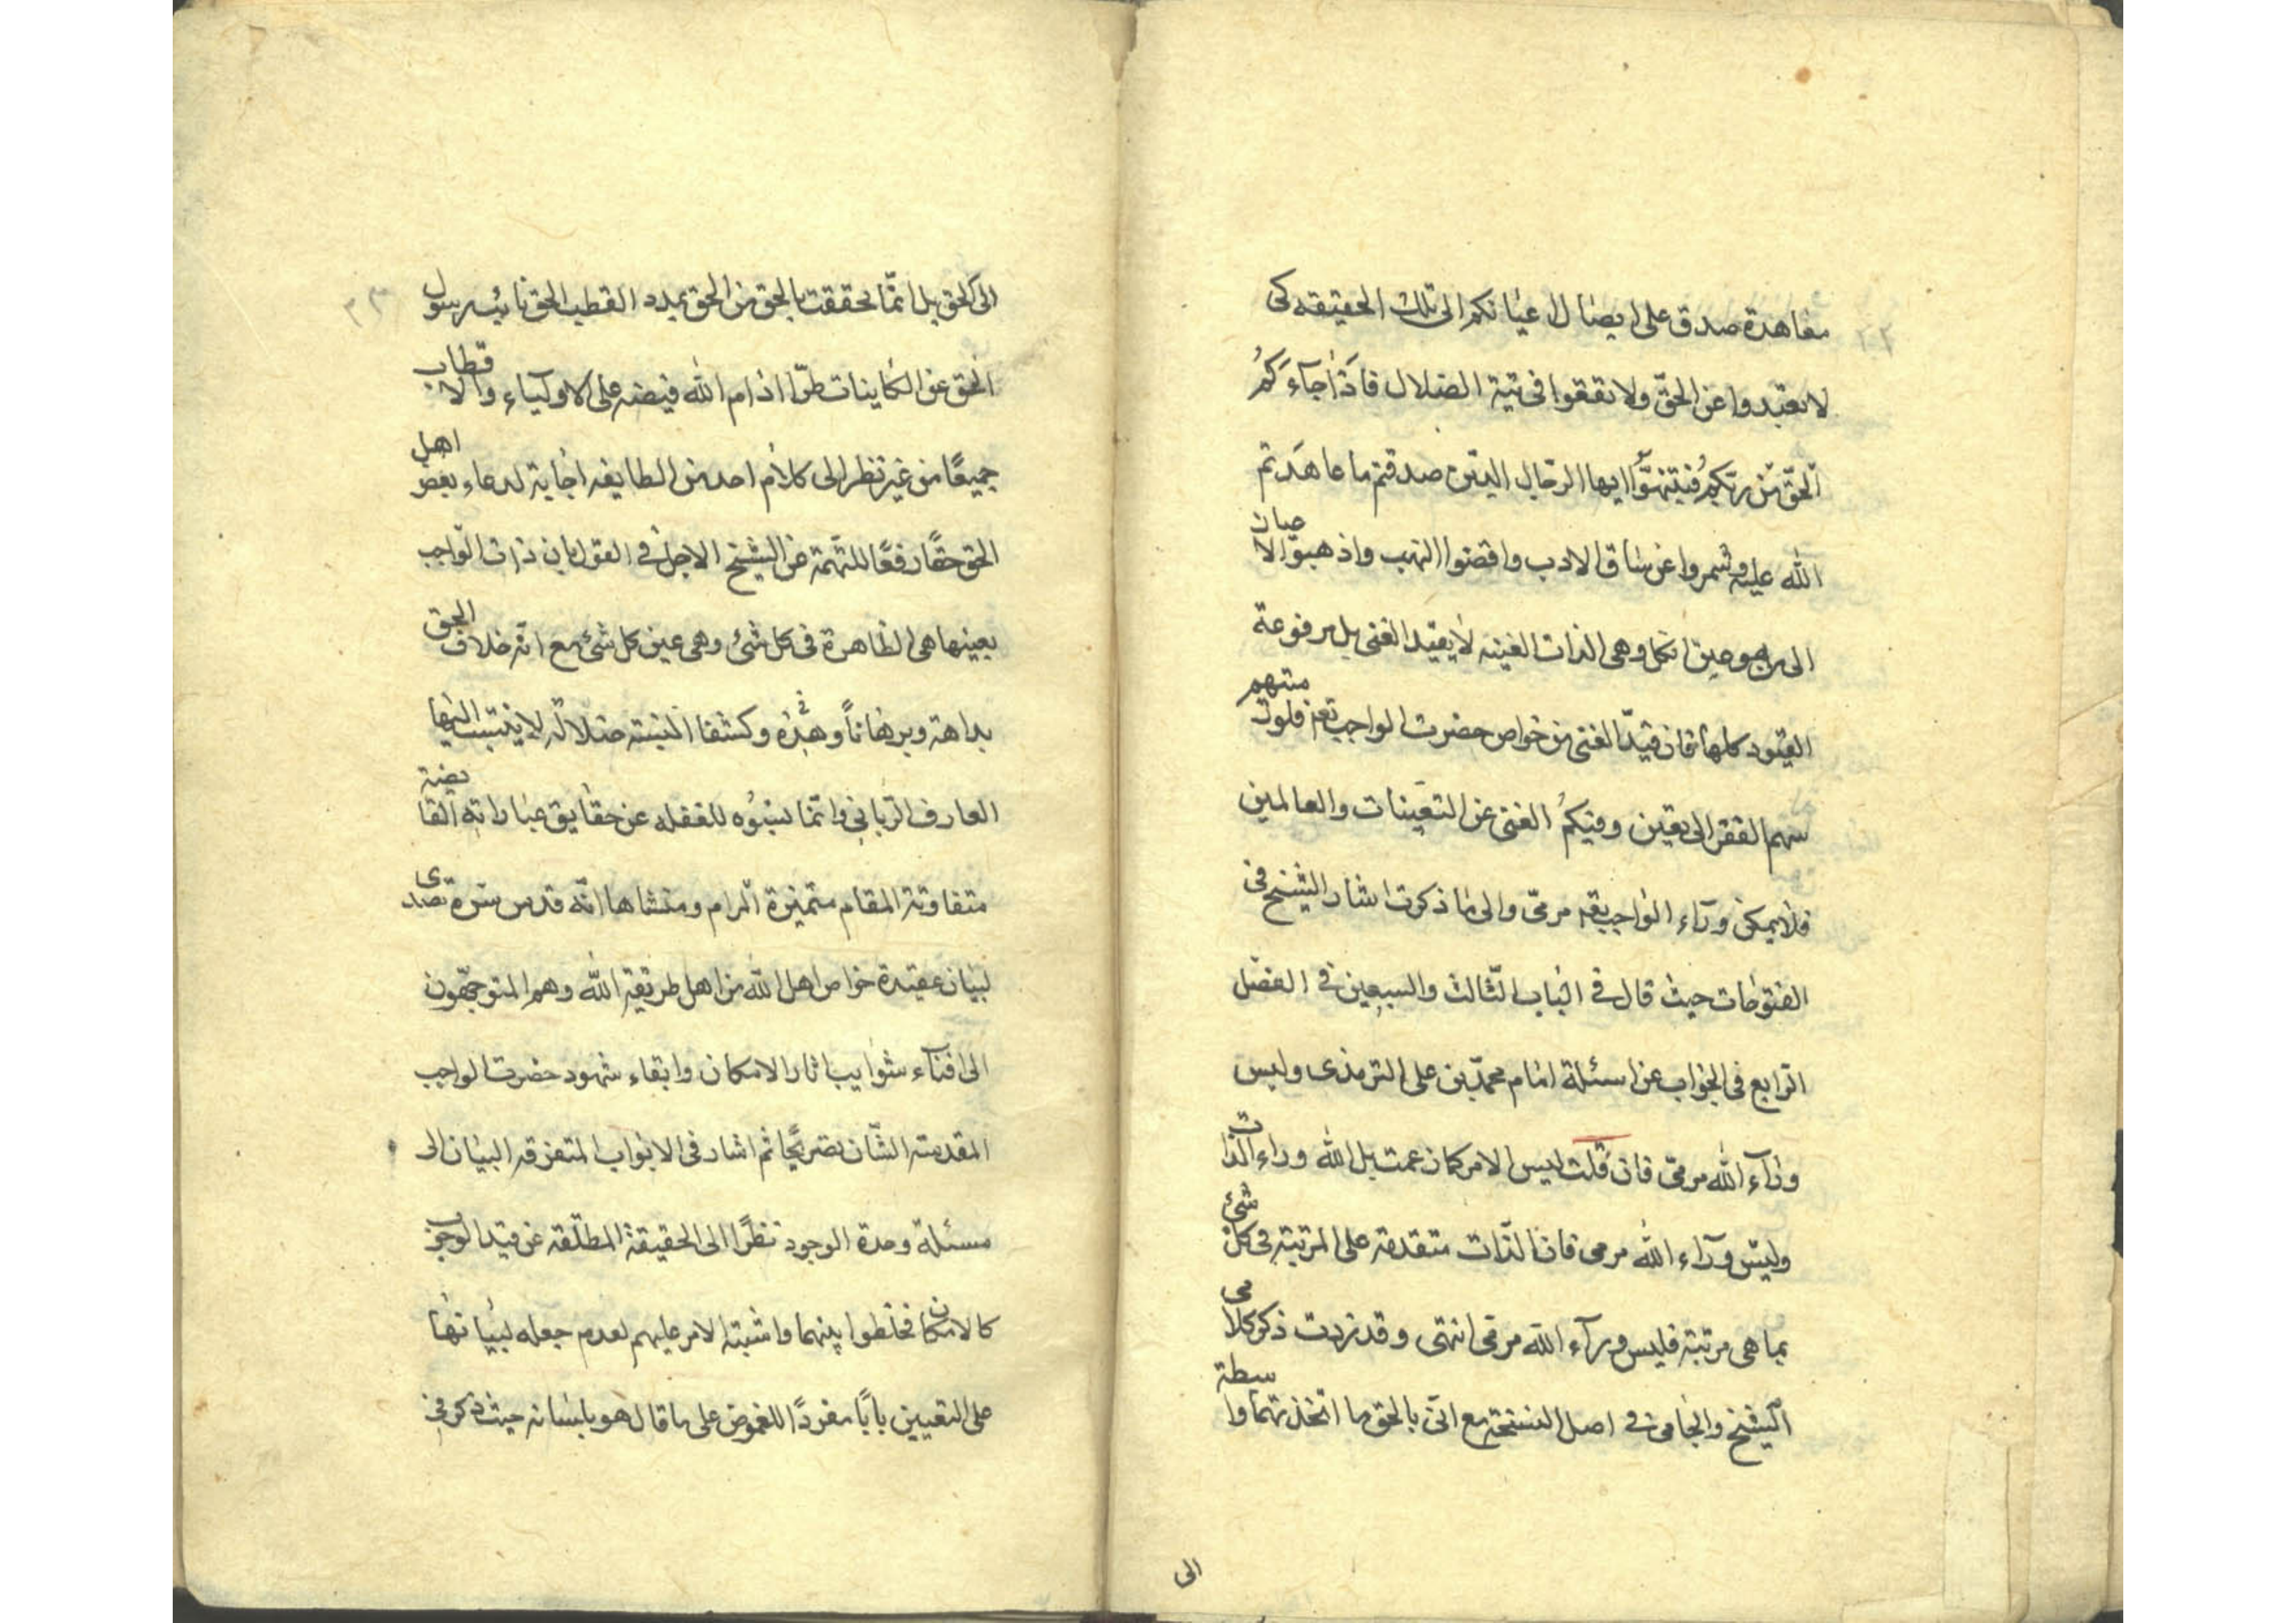 معاهدة صدق على ايصال اعيانكم الى تلك الحقيقه كى
لا تعبدوا عن الحقّ ولا تقعوا فى تية الضلال فاذا جآءكم
الحقّ من ربّكم فتنبّهوا ايها الرجال الذين صدقتم ما عاهدتم
الله عليه وشمروا عن ساق الادب واقضوا النهب واذهبوا الا صان
الى وهى الذات الغنيه لا بقيد الغنى بل مرفوعة
القيود كلها فان قيد الغنى من خواص حضرت الواجب تعم فلوث منهم
سهم الفقر الى يقين وفيكم الغنى عن التعينات والعالمين
فلا يمكن ورآء الواجب بقه مرمى والى ما ذكرت اشار الشيخ فى
الفتوحات حيث قال فى الباب الثّالث والسبعين فى الفصل
الرّابع فى الجواب عن اسئلة امام محمّد بن على الترمذى وليس
ورآء الله مرمى فان قلت ليس الامر كمان عمت بل الله وراء الذات
وليس ورآء الله مرمى فان الذّات متقدمة على المرتبة فى كل شئ
بما هى مرتبة فليس ورآء الله مرمى انتهى وقد نردت ذكر كلا مى
الشيخ والجامى فى اصل النسخة مع انّى بالحق ما اتخذتهما وا سطة
الى
٢٣
الى الحق بل انّما تحققت بالحق من الحق بمدد القطب الحق نايئه رسول
الحق عن الكاينات طرّا ادام الله فيضه على الاولياء والا قطاب
جميعًا من غير نظر الى كلام احد من الطايفه اجابة لدعاء بعض اهل
الحق حقّا رفعًا للتّهمة عن الشيخ الاجل فى القول بان ذات الواجب
بعينها هى الظاهرة فى كل شئ وهى عين كل شئ مع انّه خلاف الحق
بداهة وبرهانًا وكشفا البسته ضلالة لا ينتسب اليها
العارف الرّبانى وانّما نسبوه للغفله عن حقايق عباراته القا يضة
متفاوتة المقام متميزة المرام ومنشاها انّه قدس سرّه تصد ى
لبيان عقيدة خواص اهل الله من اهل طريقة الله وهم المتوجّهون
الى افنآء شوايب اثار الامكان وابقاء شهود حضرت الواجب
المقدسة الشّان تصريحًا ثم اشار فى الابواب المتفرقه البيان الى
مسئلة وحدة الوجود نظرًا الى الحقيقة المطلقه عن قيد الوجوب
كالامكان فخلطوا بينهما واشبته الامر عليهم لعدم جعله لبيانها
على التعيين بابًا مفردًا للغموض على ما قال هو بلسانه حيث ذكر فى